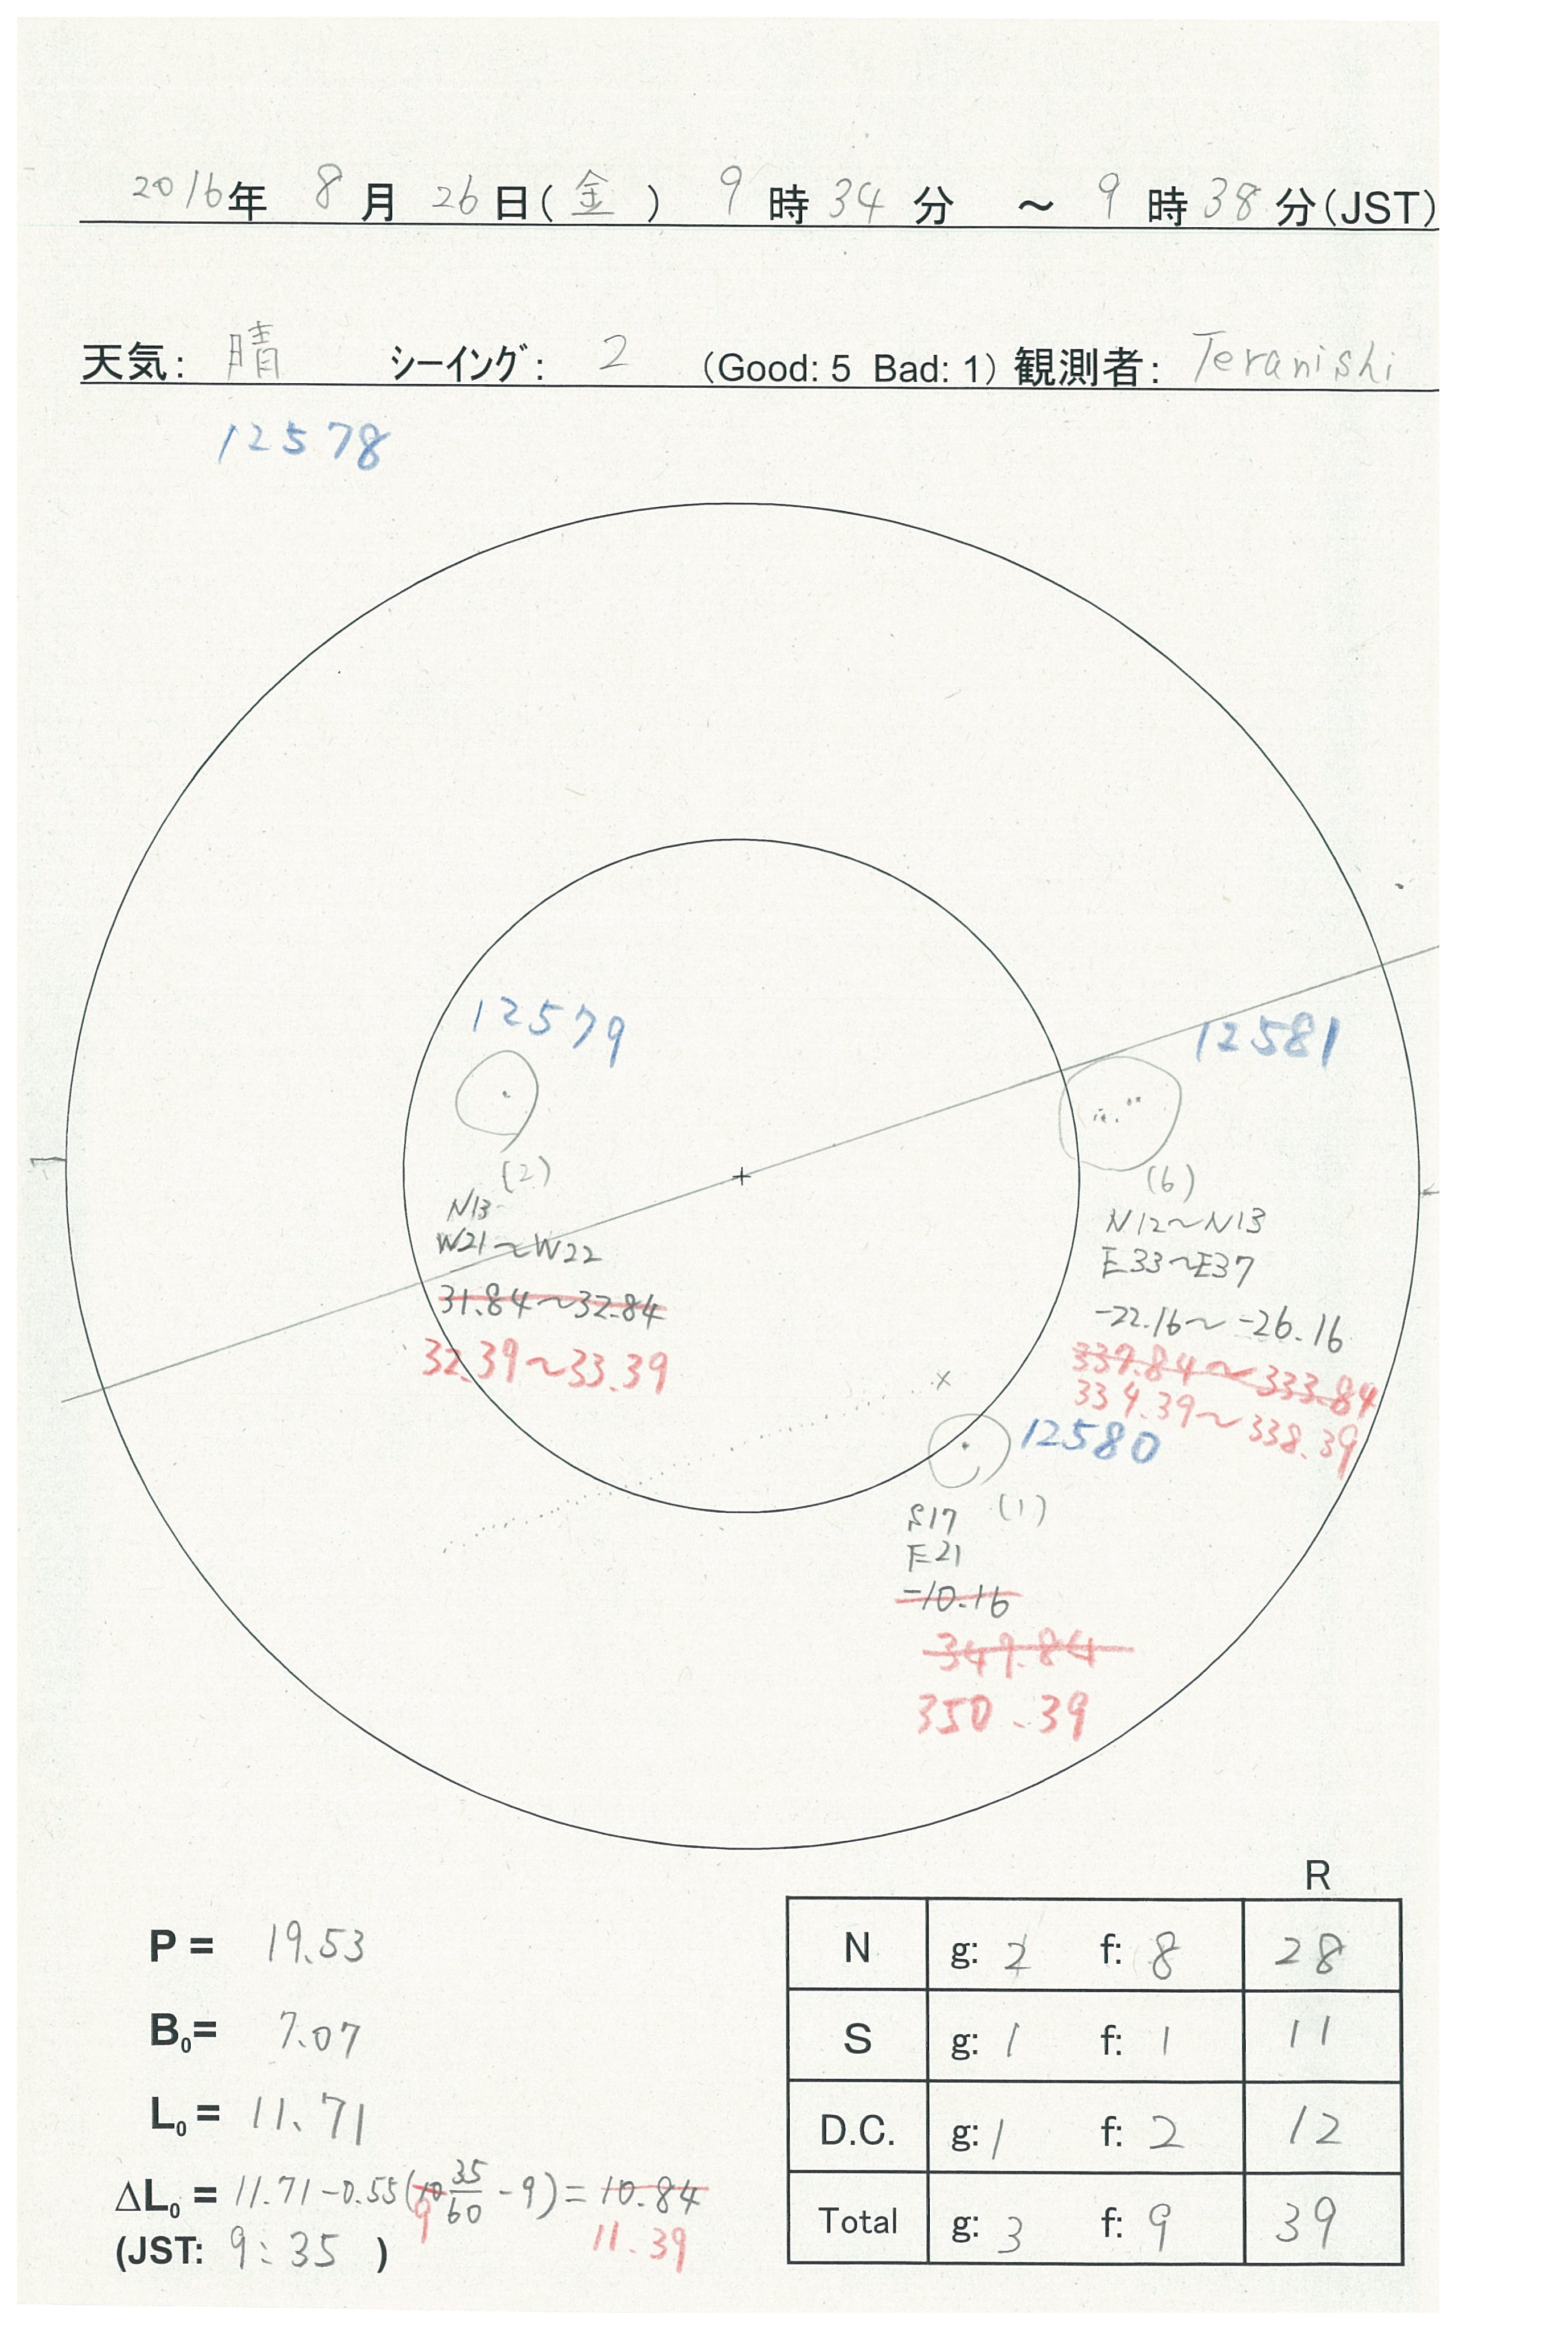 2016年 8月 26日(金) 9時34分 ～ 9時38分(JST)
天気: 晴 シーイング: 2 (Good: 5 Bad: 1) 観測者: Teranishi
12578
12579
(2)
N13
W21～W22
31.84～32.84
32.39～33.39
12581
(6)
N12～N13
E33～E37
-22.16～-26.16
337.84～333.84
334.39～338.39
12580
(1)
S17
E21
-10.16
349.84
350.39
P = 19.53
B₀= 7.07
L₀ = 11.71
ΔL₀ = 11.71-0.55(10 35/60 -9)= 10.84
9
11.39
(JST: 9:35 )
R
N g: 2 f: 8 28
S g: 1 f: 1 11
D.C. g: 1 f: 2 12
Total g: 3 f: 9 39